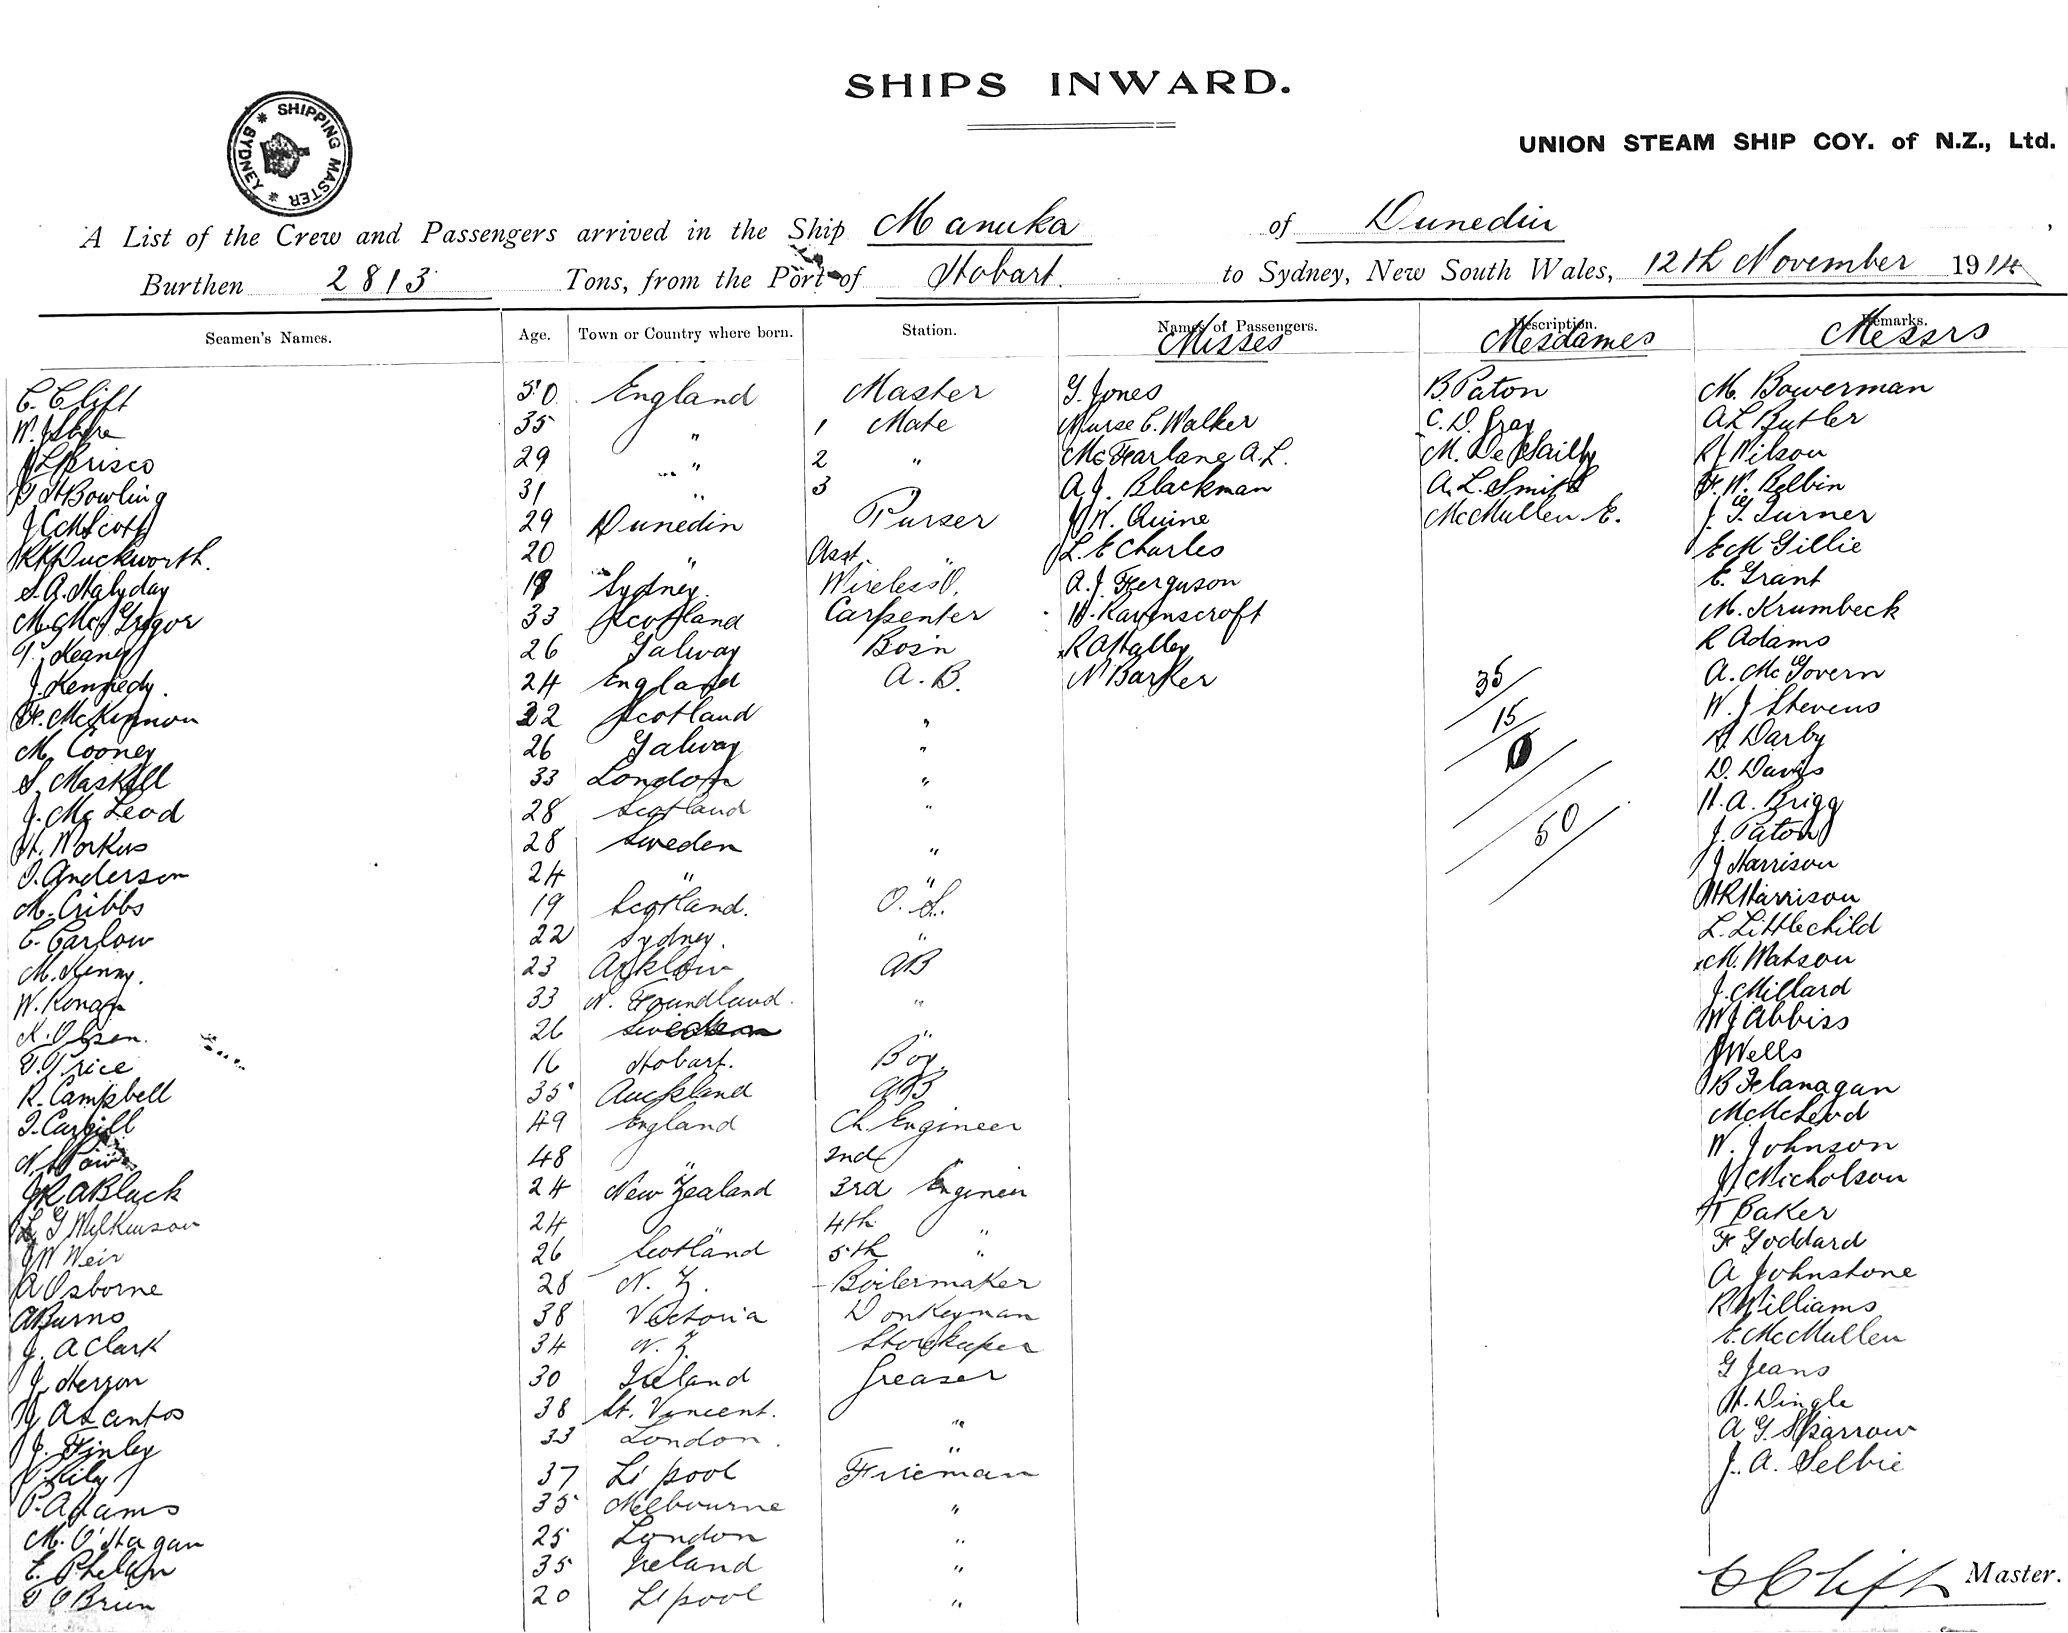 SHIPS INWARD.
SHIPPING MASTER * SYDNEY *
UNION STEAM SHIP COY. of N.Z., Ltd.
A List of the Crew and Passengers arrived in the Ship Manuka of Dunedin
Burthen 2813 Tons, from the Port of Hobart. to Sydney, New South Wales, 12th November 1914
Seamen's Names. Age. Town or Country where born. Station. Names of Passengers. Description. Remarks.
Misses Mesdames Messrs
C. Clift 50 England Master G. Jones B. Paton M. Bowerman
W. 35 " 1 Mate Nurse C. Walker C. D. Gray A L Butler
29 " 2 " McFarlane A. L. M. De R J Wilson
Bowling 31 " 3 " A. J. Blackman A. L. Smith F. W. Belbin
J C Mc Scott 29 Dunedin Purser J W. Quine McMullen E. J. G. Turner
R K Duckworth. 20 " Asst. " L. E Charles E M Gillie
S. A. Halyday 18 Sydney. Wireless O. A. J. Ferguson E. Grant
M. McGregor 33 Scotland Carpenter H. Ravenscroft M. Krumbeck
T. Keaney 26 Galway Bosn R A Halley R Adams
J. Kennedy. 24 England A. B. N Barker 35 A. McGovern
F. McKinnon 22 Scotland " 15 W. J Stevens
M. Cooney 26 Galway " Darby
S. Maskell 33 London " D. Davis
J. McLeod 28 Scotland " H. A. Brigg
H. Workus 28 Sweden " 50 J. Paton
O. Anderson 24 " " J Harrison
M. Cribbs 19 Scotland. O. S. W R Harrison
C. Carlow 22 Sydney. " L. Littlechild
M. Kenny. 23 Arklow AB M. Watson
W. Ronan 33 N. Foundland. " J. Millard
K. Olsen. 26 Sweden " W J Abbiss
T. Price 16 Hobart. Boy. J Wells
R. Campbell 35 Auckland AB B Flanagan
J. Cargill 49 England Ch. Engineer M McLeod
N. 48 " 2nd " W. Johnson
J R A Black 24 New Zealand 3rd Engineer J Nicholson
L. G Wilkinson 24 " 4th " T Baker
J W Weir 26 Scotland 5th " F Goddard
A Osborne 28 N. Z. Boilermaker A Johnstone
A Burns 38 Victoria Donkeyman R Williams
J. A Clark 34 N. Z. Storekeeper E. McMullen
J. Herron 30 Ireland Greaser G Jeans
J A Santos 38 St. Vincent. " H. Dingle
J. Finley 33 London. " A G. Sparrow
P. Rily 37 L'pool Frieman J. A. Selbie
P. Adams 35 Melbourne "
M. O'Hagan 25 London "
E. Phelan 35 Ireland "
T O'Brien 20 L'pool "
C Clift Master.